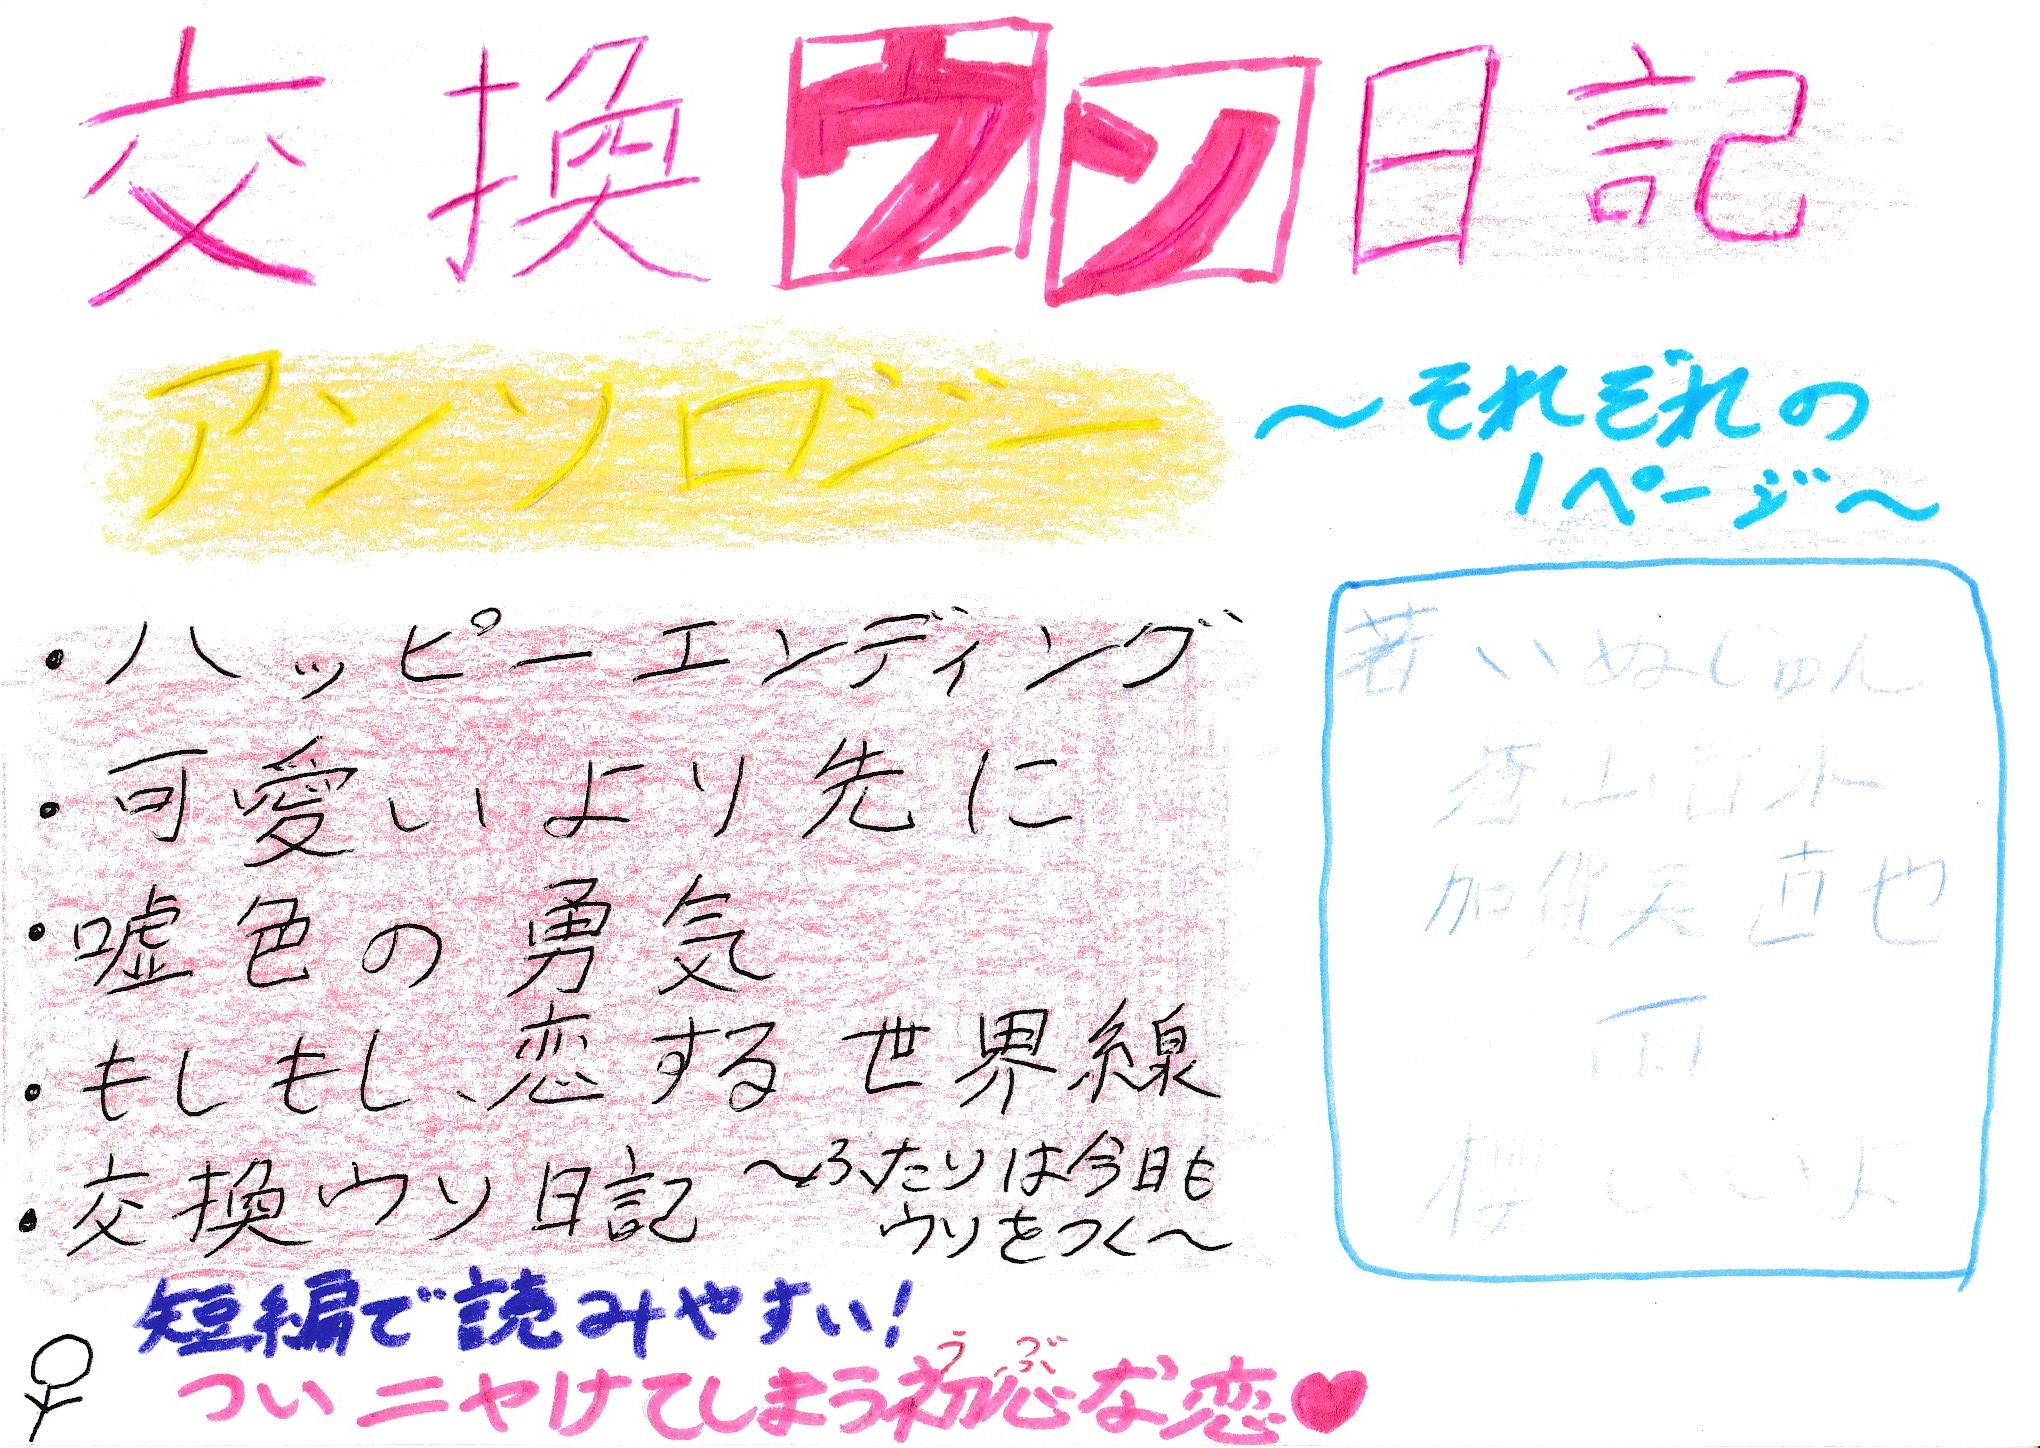 交換ウソ日記
アンソロジー
～それぞれの
1ページ～
・ハッピーエンディング
・可愛いより先に
・嘘色の勇気
・もしもし、恋する世界線
・交換ウソ日記 ～ふたりは今日も
ウソをつく～
いぬじゅん
加賀美直也
雨
櫻いいよ
短編で読みやすい!
うぶ
ついニヤけてしまう初心な恋♥